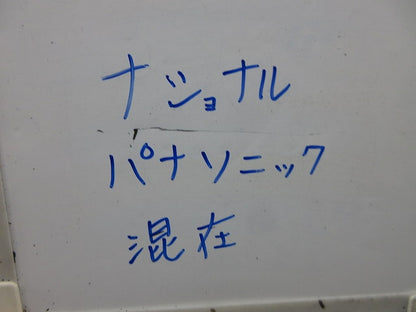 ナショナル
パナソニック
混在